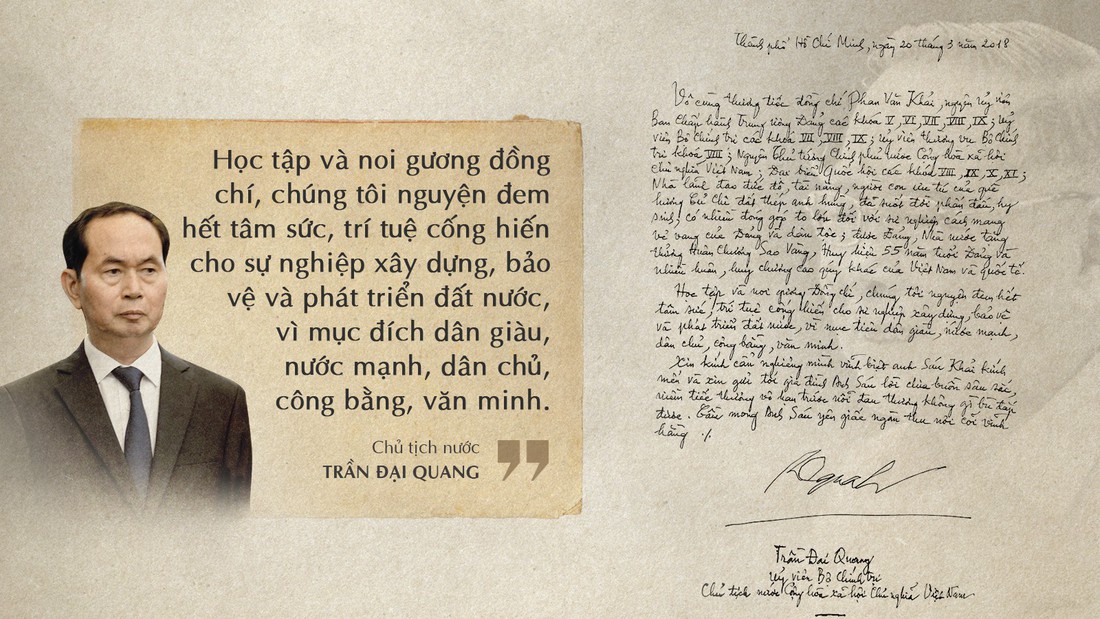 Học tập và noi gương đồng
chí, chúng tôi nguyện đem
hết tâm sức, trí tuệ cống hiến
cho sự nghiệp xây dựng, bảo
vệ và phát triển đất nước,
vì mục đích dân giàu,
nước mạnh, dân chủ,
công bằng, văn minh.
Chủ tịch nước
TRẦN ĐẠI QUANG
Thành phố Hồ Chí Minh, ngày 20 tháng 3 năm 2018
Vô cùng thương tiếc đồng chí Phan Văn Khải, nguyên Uỷ viên
Ban Chấp hành Trung ương Đảng các khoá V, VI, VII, VIII, IX; Uỷ
viên Bộ Chính trị các khoá VII, VIII, IX; Uỷ viên thường vụ Bộ Chính
trị khoá VIII; Nguyên Thủ tướng Chính phủ nước Cộng hòa xã hội
chủ nghĩa Việt Nam; Đại biểu Quốc hội các khoá VIII, IX, X, XI;
Nhà lãnh đạo tài năng, người con ưu tú của quê
hương Củ Chi đất thép anh hùng, đã suốt đời phấn đấu, hy
sinh, có nhiều đóng góp to lớn đối với sự nghiệp cách mạng
vẻ vang của Đảng và dân tộc; được Đảng, Nhà nước tặng
thưởng Huân chương Sao Vàng, Huy hiệu 55 năm tuổi Đảng và
nhiều huân, huy chương cao quý khác của Việt Nam và Quốc tế.
Học tập và noi gương Đồng chí, chúng tôi nguyện đem hết
tâm sức, trí tuệ cống hiến cho sự nghiệp xây dựng, bảo vệ
và phát triển đất nước, vì mục tiêu dân giàu, nước mạnh,
dân chủ, công bằng, văn minh.
Xin kính cẩn nghiêng mình vĩnh biệt anh Sáu Khải kính
mến và xin gửi tới gia đình Anh Sáu lời chia buồn sâu sắc,
niềm tiếc thương vô hạn trước nỗi đau thương không gì bù đắp
được. Cầu mong Anh Sáu yên giấc ngàn thu nơi cõi vĩnh
hằng ./.
Trần Đại Quang
Uỷ viên Bộ Chính trị
Chủ tịch nước Cộng hòa xã hội Chủ nghĩa Việt Nam